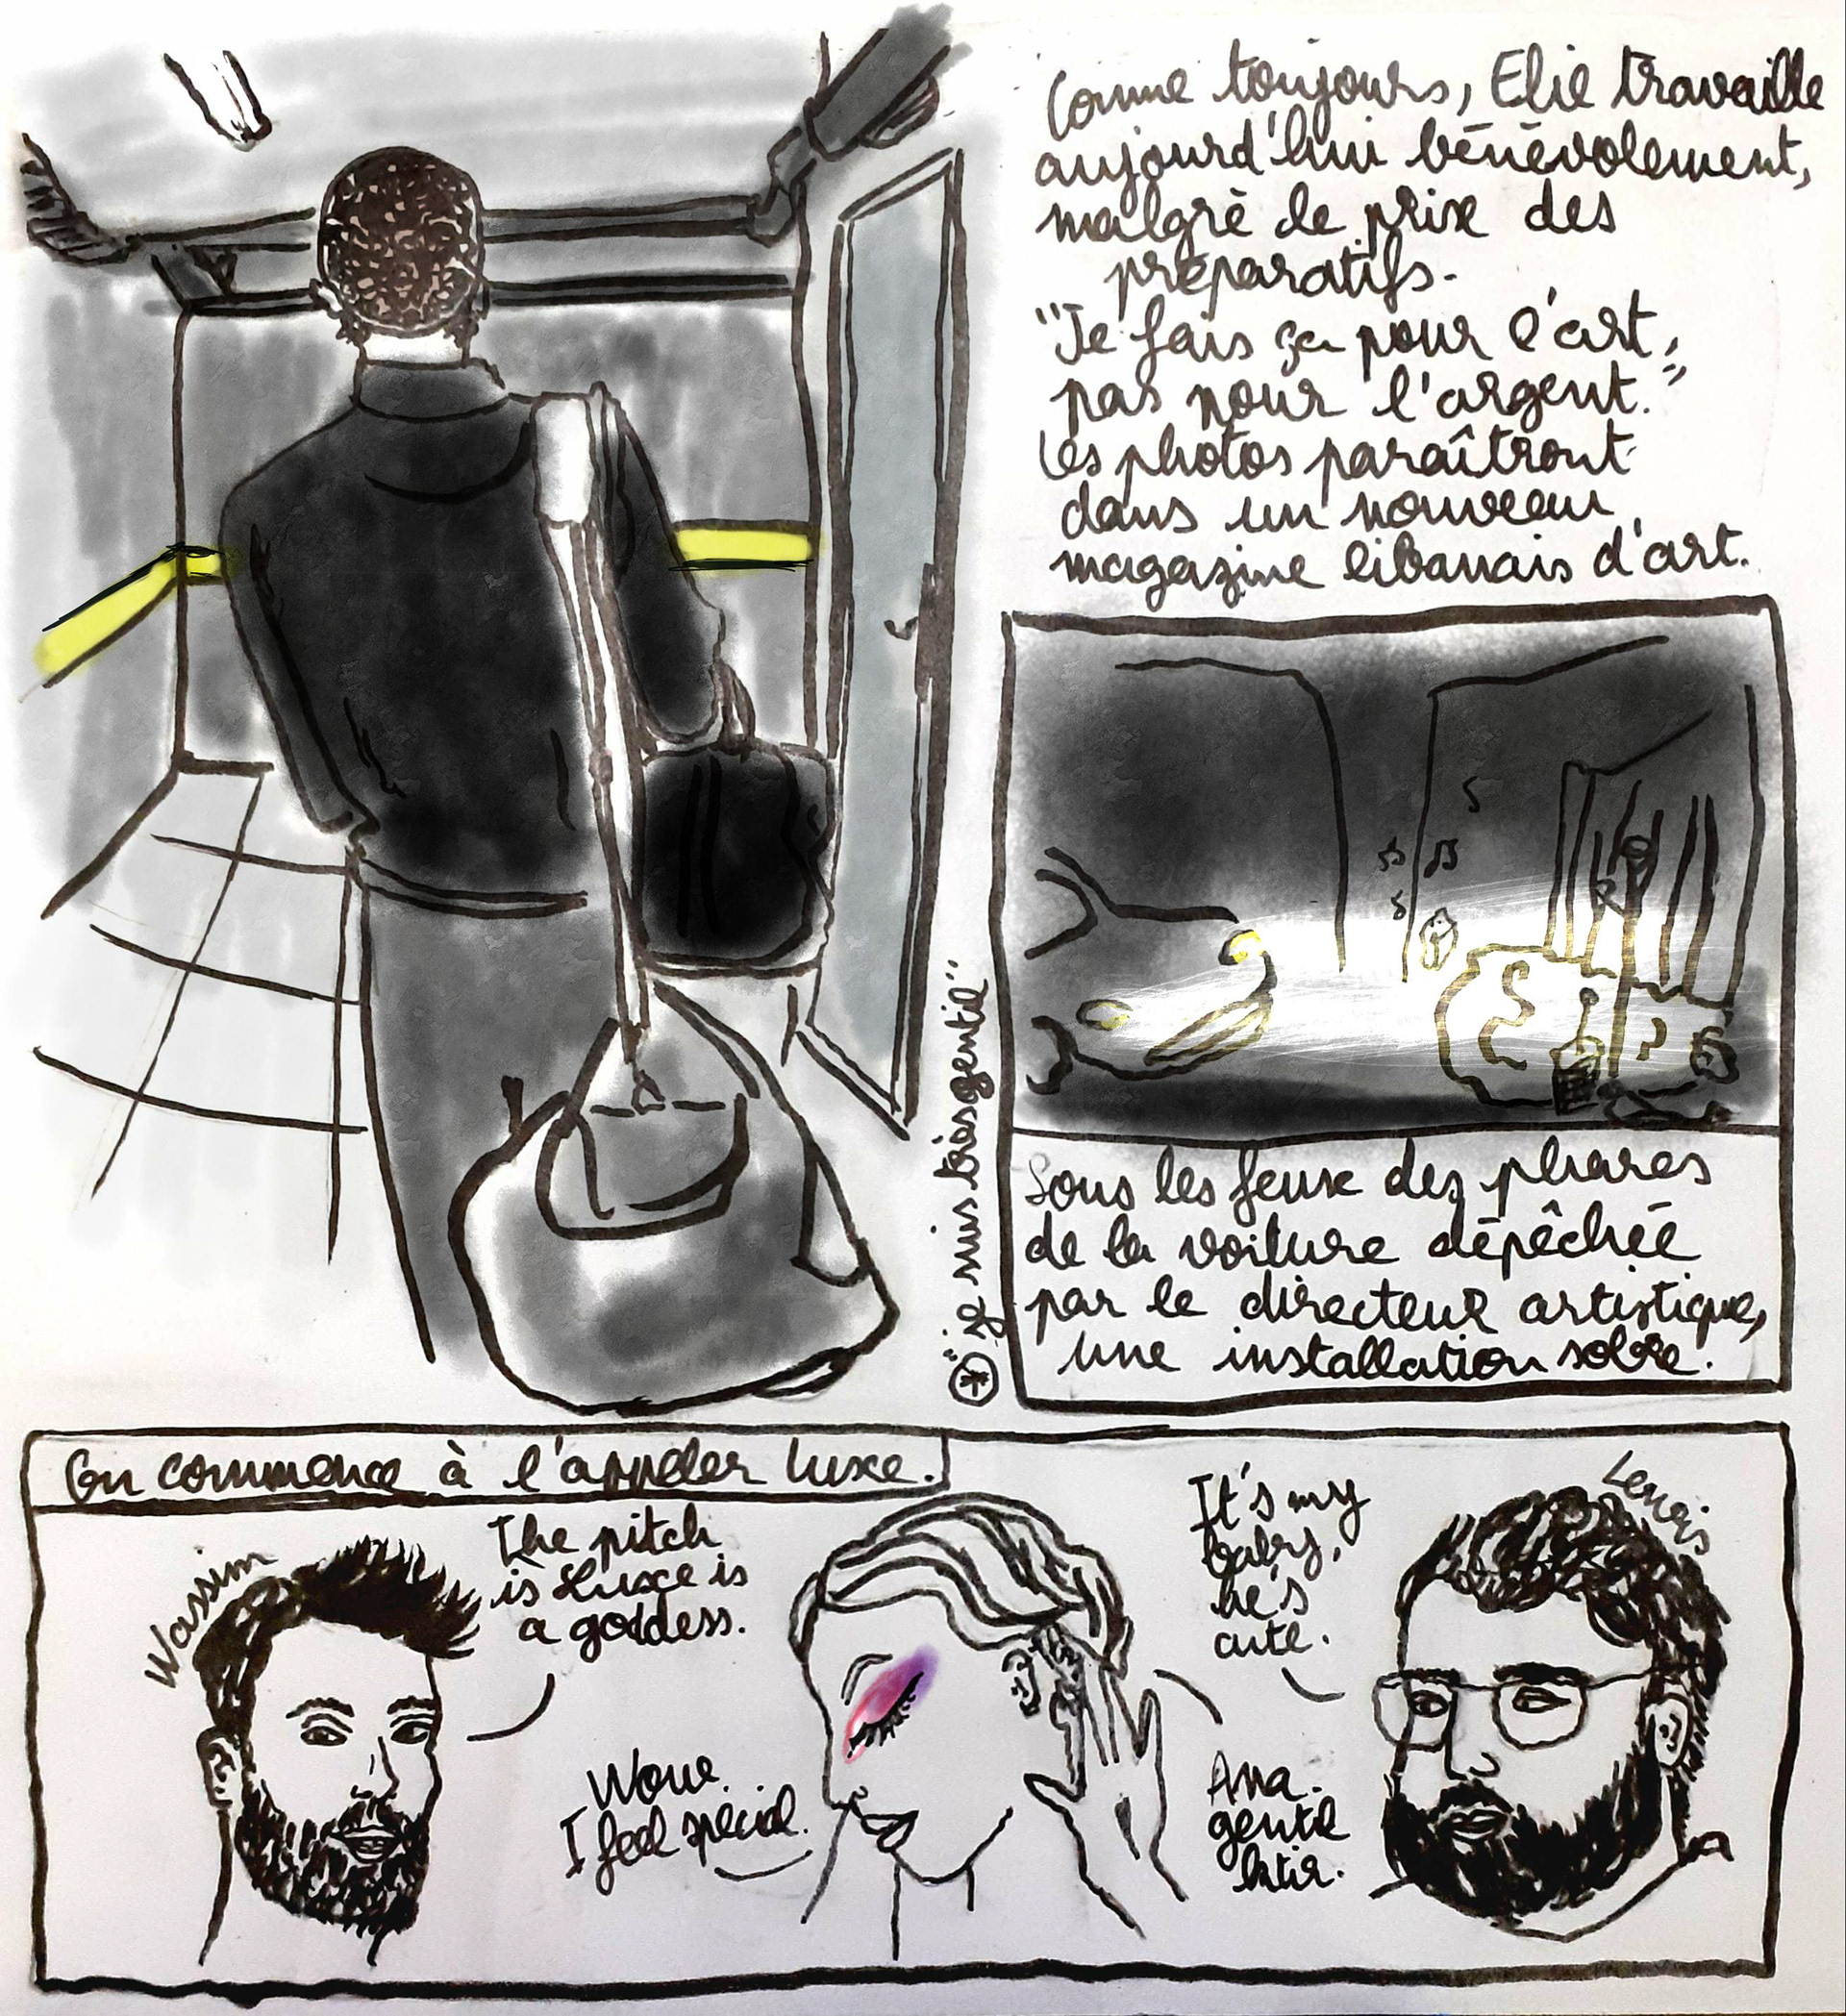 Comme toujours, Elie travaille
aujourd'hui bénévolement,
malgré le prix des
préparatifs.
"Je fais ça pour l'art,
pas pour l'argent."
Les photos paraîtront
dans un nouveau
magazine libanais d'art.
Sous les feux des phares
de la voiture dépêchée
par le directeur artistique,
une installation sobre.
* "je suis très gentil"
On commence à l'appeler Luxe.
Wassim
The pitch
is Luxe is
a goddess.
Wow.
I feel special.
It's my
baby,
he's
cute.
Ana
gentil
ktir.